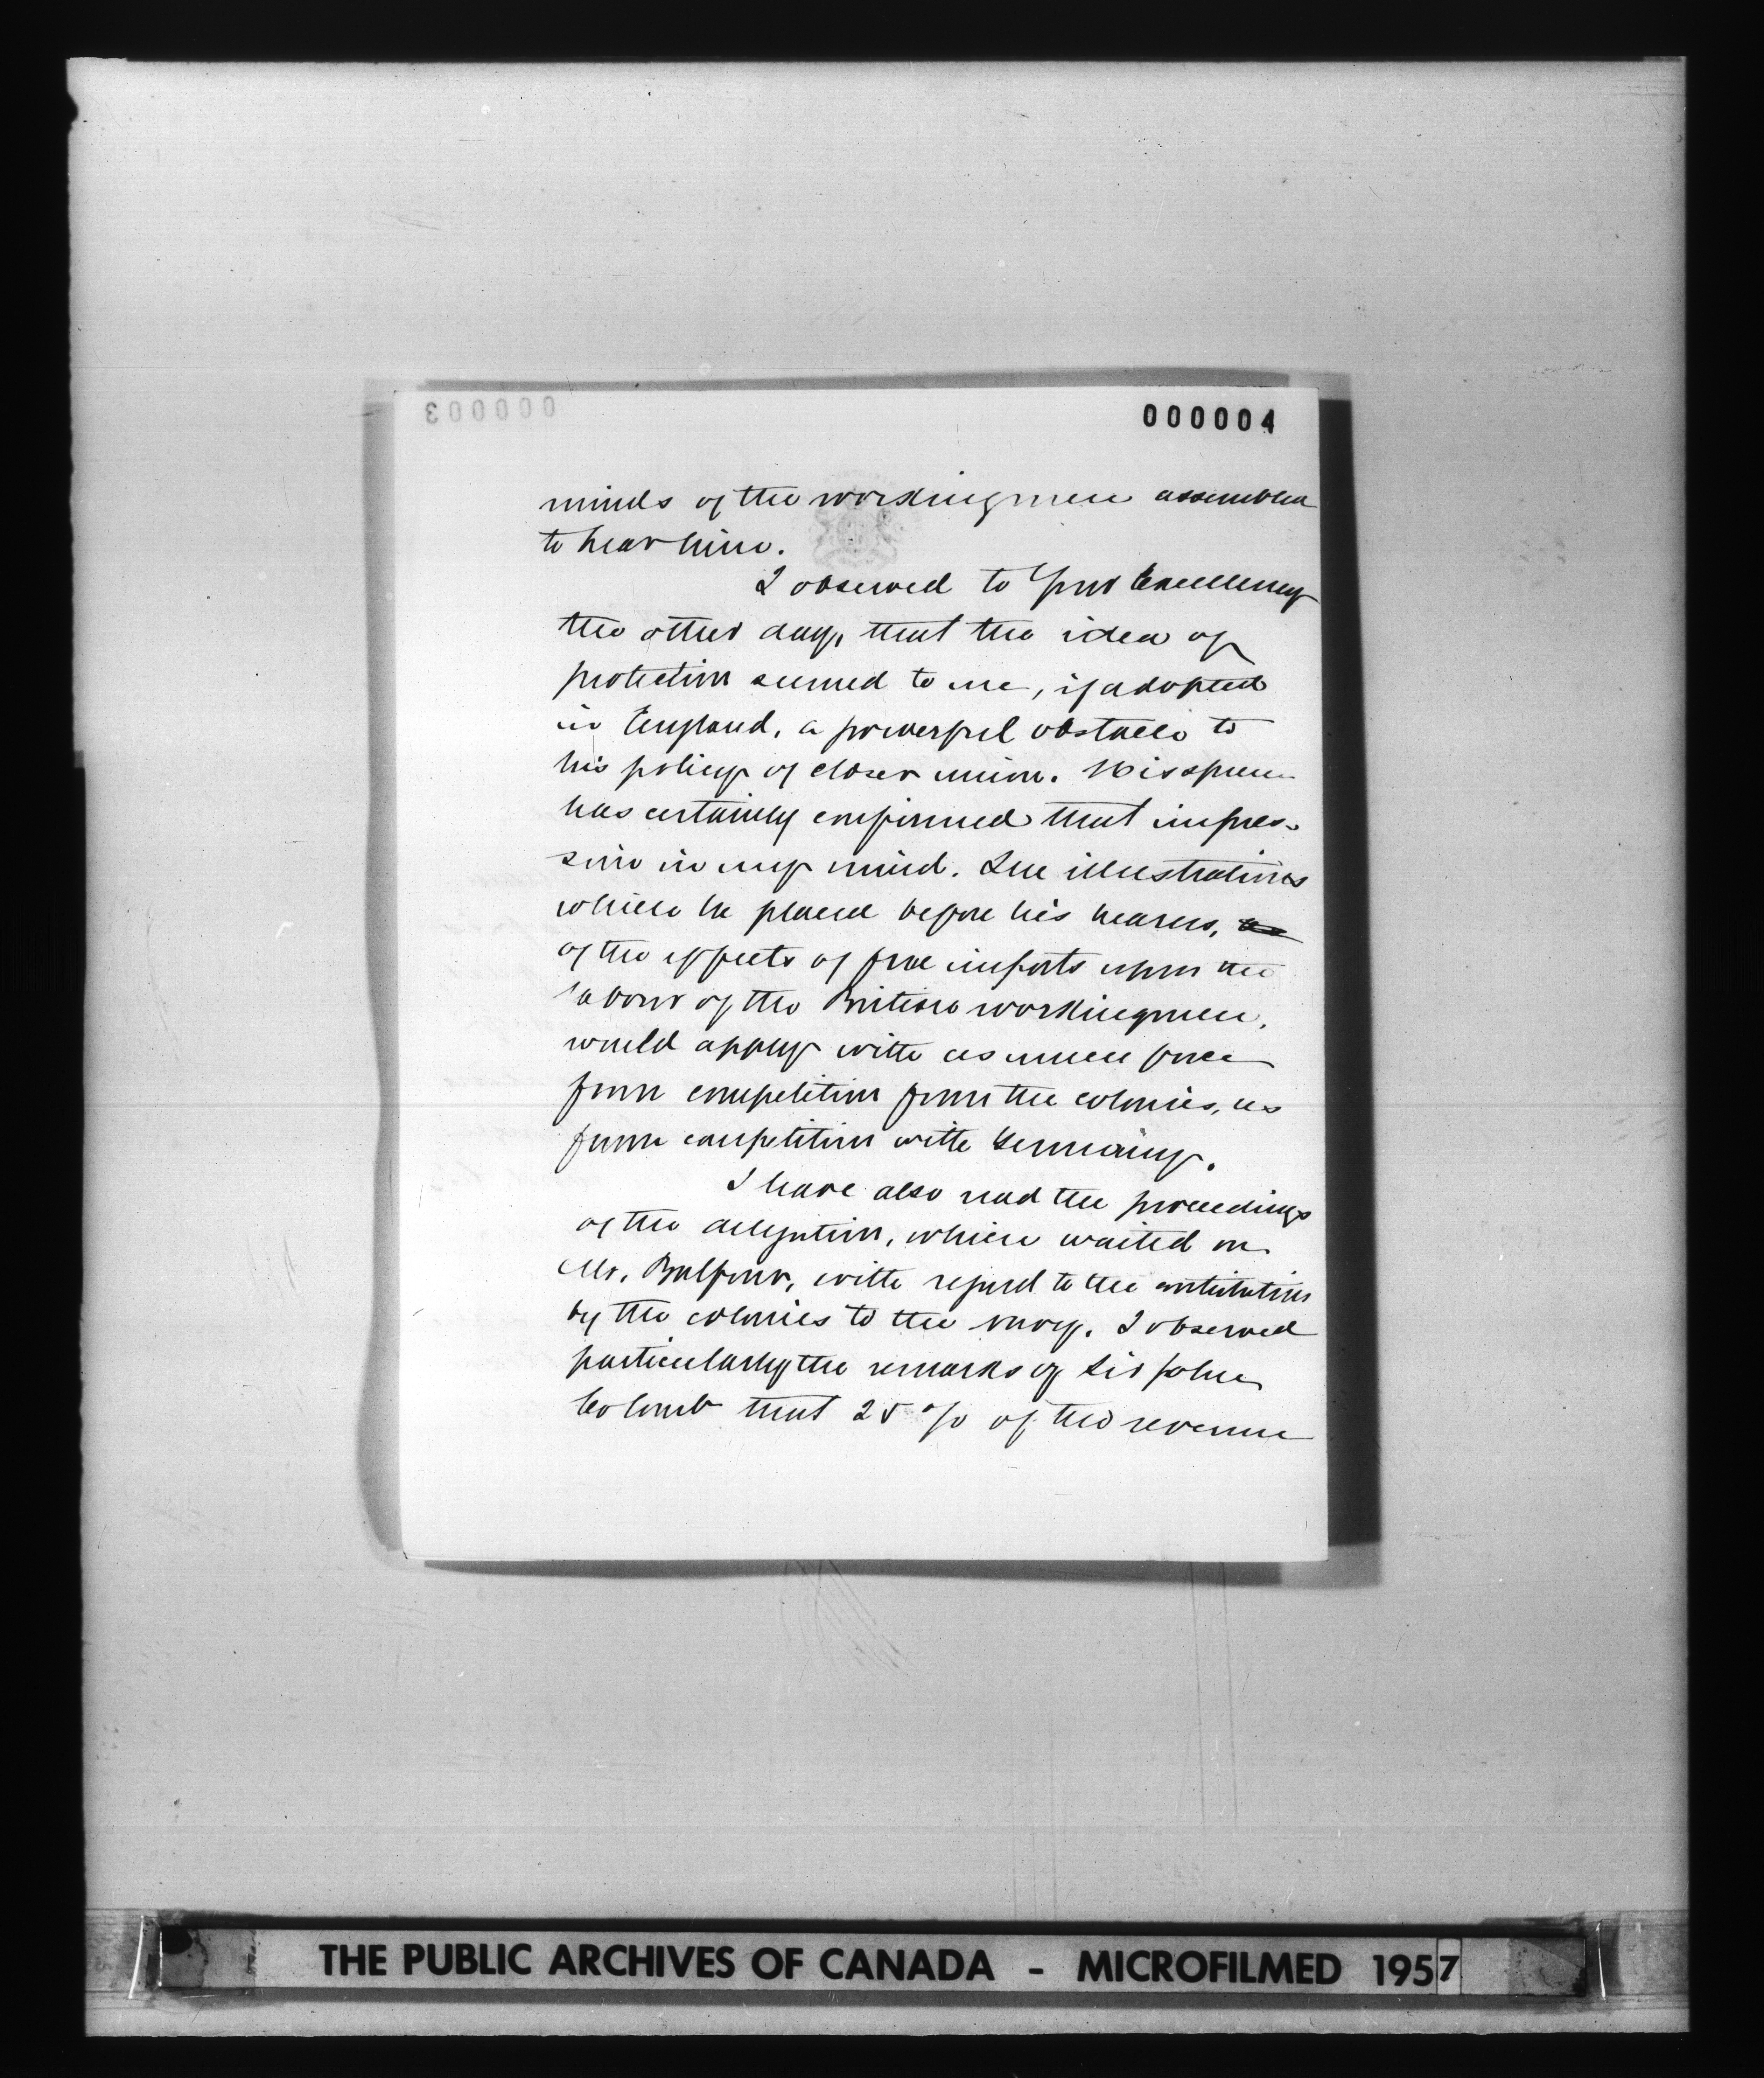 000003
000004
minds of the workingmen assembled
to hear him.
I observed to Your Excellency
the other day, that the idea of
protection seemed to me, if adopted
in England, a powerful obstacle to
his policy of closer union. His speech
has certainly confirmed that impres-
sion in my mind. The illustrations
which he placed before his hearers,
of the effects of free imports upon the
labour of the British workingmen,
would apply with as much force
from competition from the colonies, as
from competition with Germany.
I have also read the proceedings
of the delegation, which waited on
Mr. Balfour, with regard to the contribution
by the colonies to the navy. I observed
particularly the remarks of Sir John
Colomb that 25 % of the revenue
THE PUBLIC ARCHIVES OF CANADA - MICROFILMED 1957